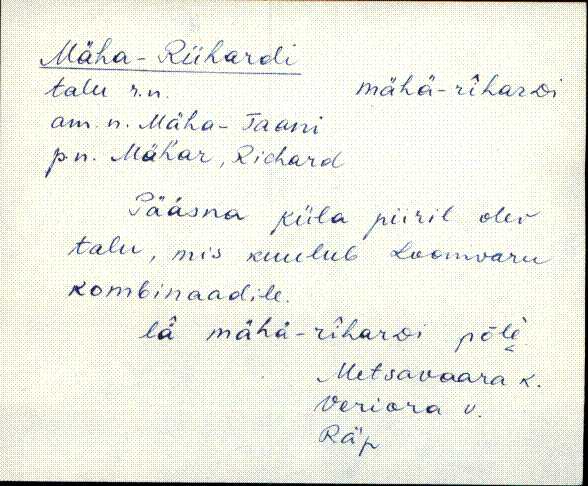 Mäha-Riihardi
talu r.n. mähä-rîharDi
am. n. Mäha-Taani
p.n. Mähar, Richard
Pääsna küla piiril olev
talu, mis kuulub Loomvaru
kombinaadile.
lâ mähä-rîharDi pole
Metsavaara k.
Veriora v.
Räp